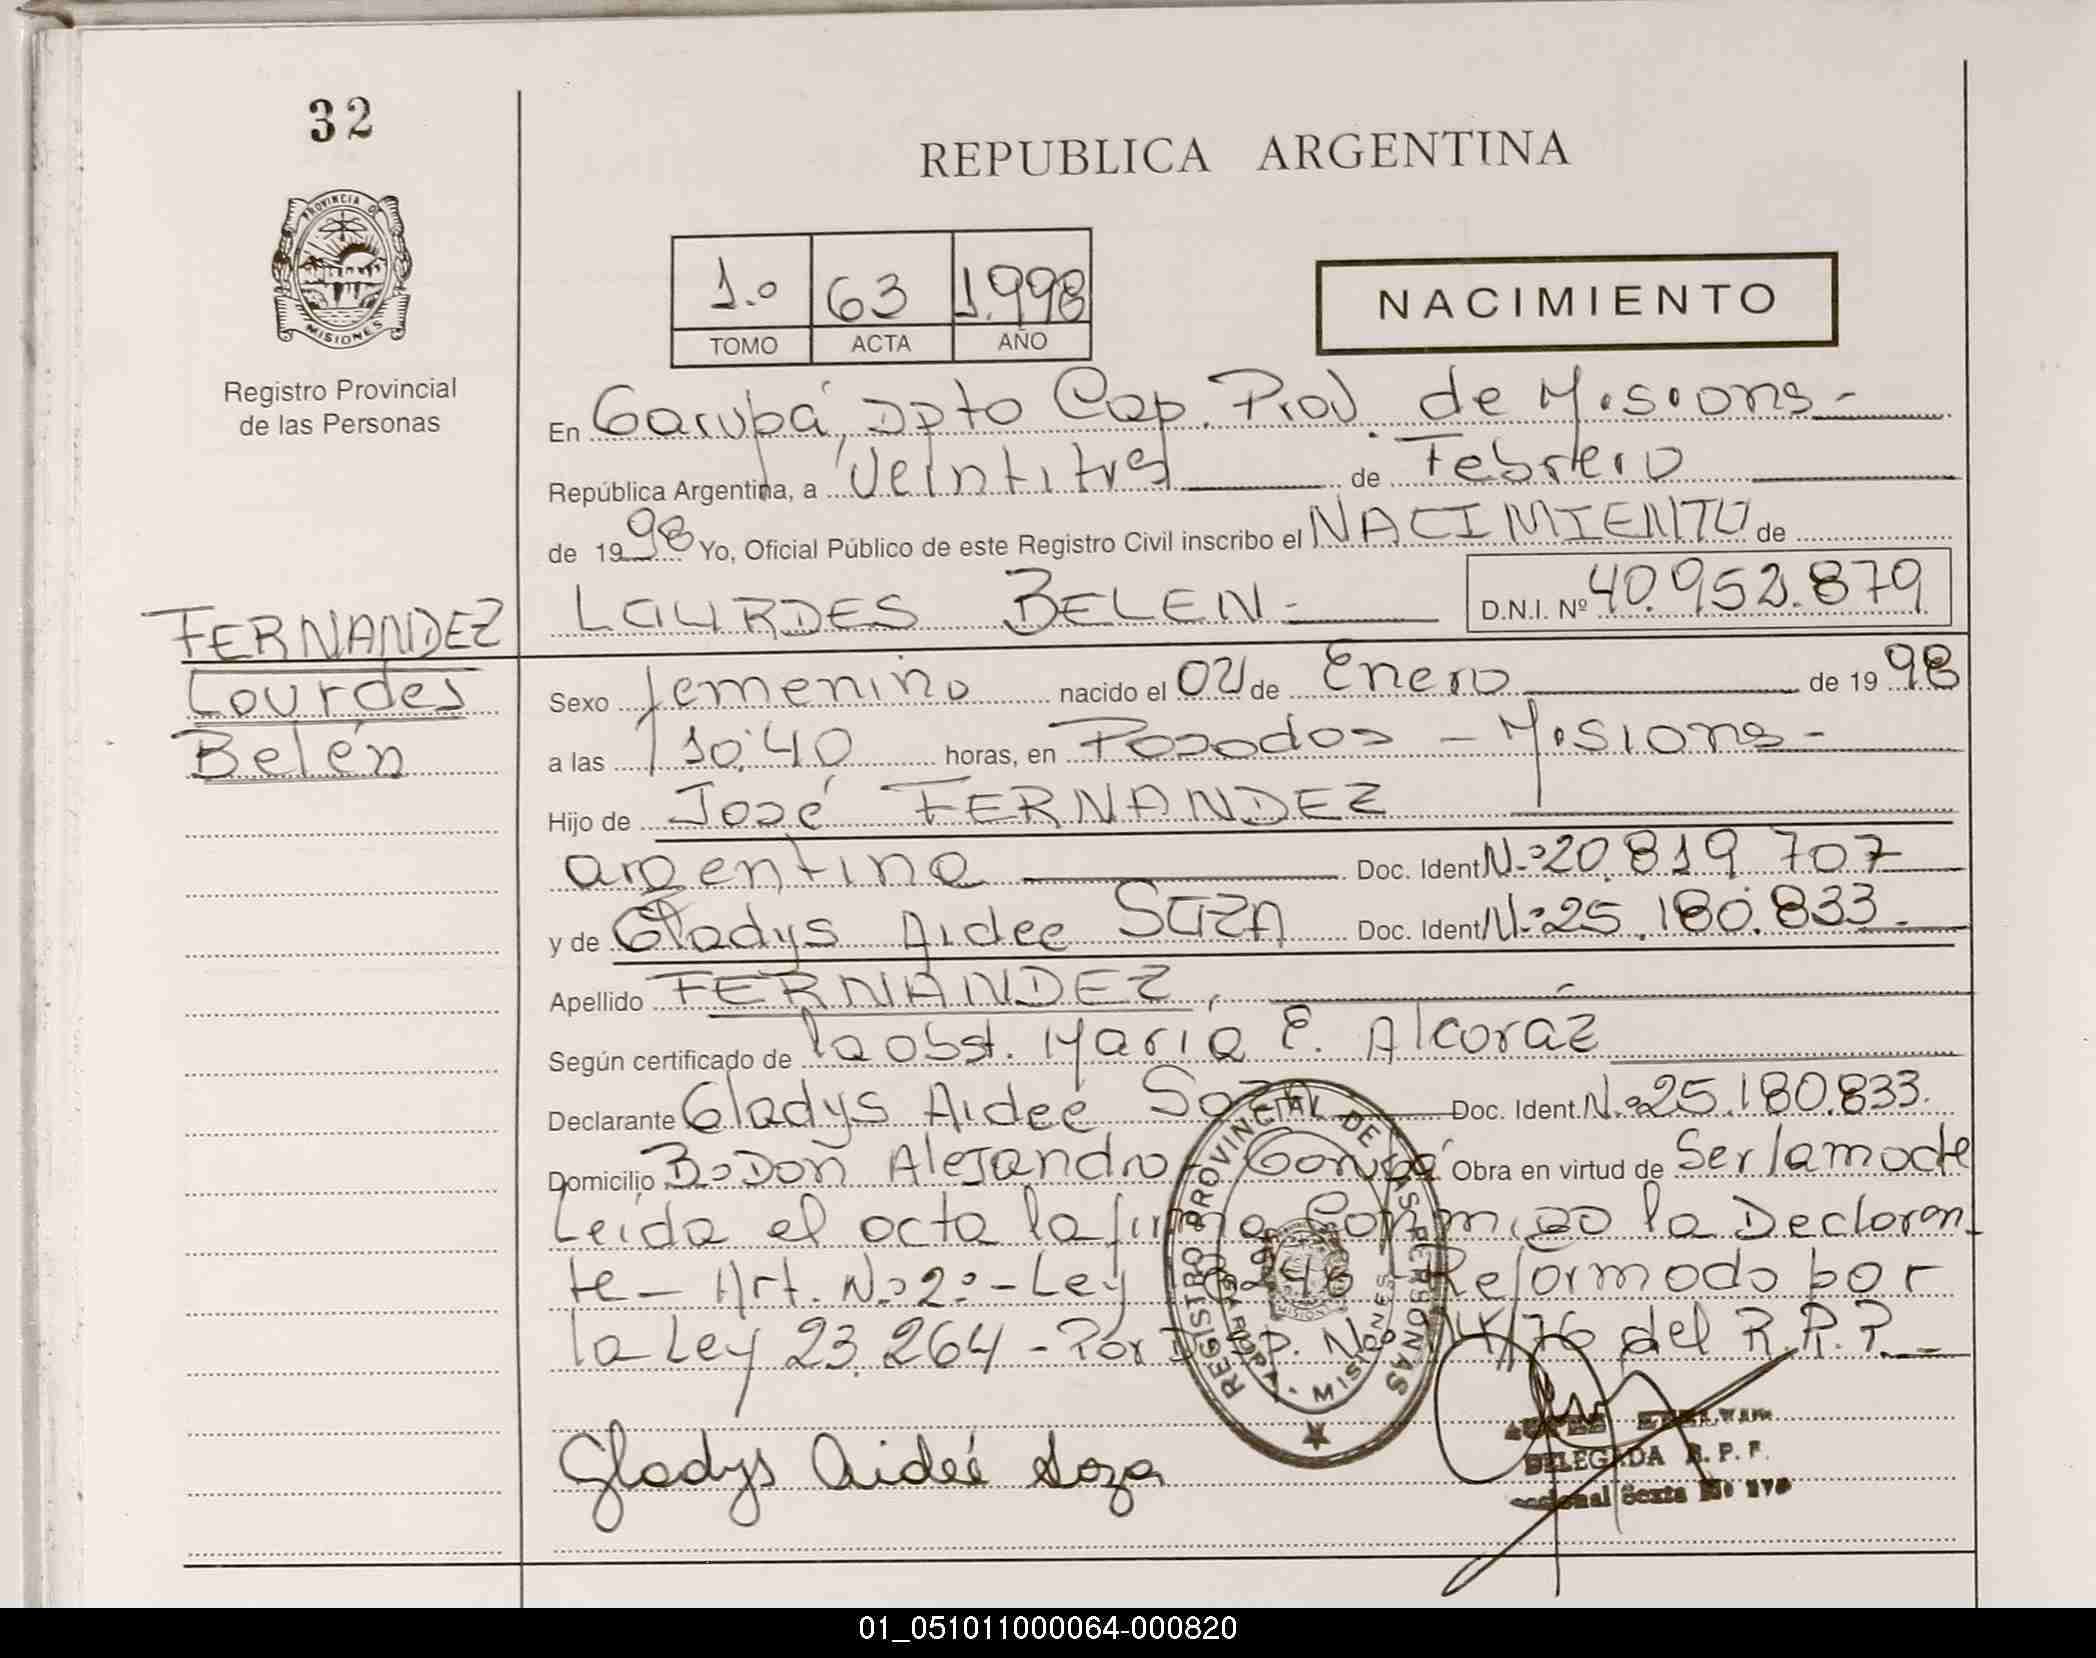 32
PROVINCIA DE
MISIONES
Registro Provincial
de las Personas
REPUBLICA ARGENTINA
1.o 63 1.998
TOMO ACTA AÑO
NACIMIENTO
En Garupá, Dpto Cap. Prov. de Misiones -
República Argentina, a Veintitres de Febrero
de 1998 Yo, Oficial Público de este Registro Civil inscribo el NACIMIENTO de
LOURDES BELEN - D.N.I. Nº 40.952.879
FERNANDEZ
Lourdes
Belén
Sexo femenino nacido el 02 de Enero de 1998
a las 10:40 horas, en Posadas - Misiones -
Hijo de José FERNANDEZ
argentina Doc. Ident Nº 20.819.707
y de Gladys Aidee SOZA Doc. Ident Nº 25.180.833.-
Apellido FERNANDEZ,
Según certificado de la obst. Maria E. Alcoráz
Declarante Gladys Aideé Soza Doc. Ident. Nº 25.180.833.
Domicilio Bº Don Alejandro - Garupá Obra en virtud de Ser la madre
Leida el acta la firma Conmigo la Declaran
te - Art. Nº 2º - Ley Reformada por
la Ley 23.264 - Por Disp. Nº /76 del R.P.P. -
REGISTRO PROVINCIAL DE LAS PERSONAS
MISIONES
Gladys Aideé Soza
DELEGADA R.P.P.
Sexta
01_051011000064-000820